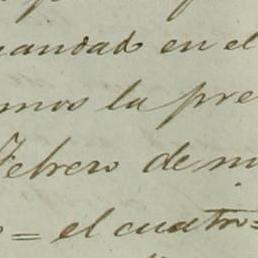 andad en el
mos la pre
Febrero de mi
= el cuatro=